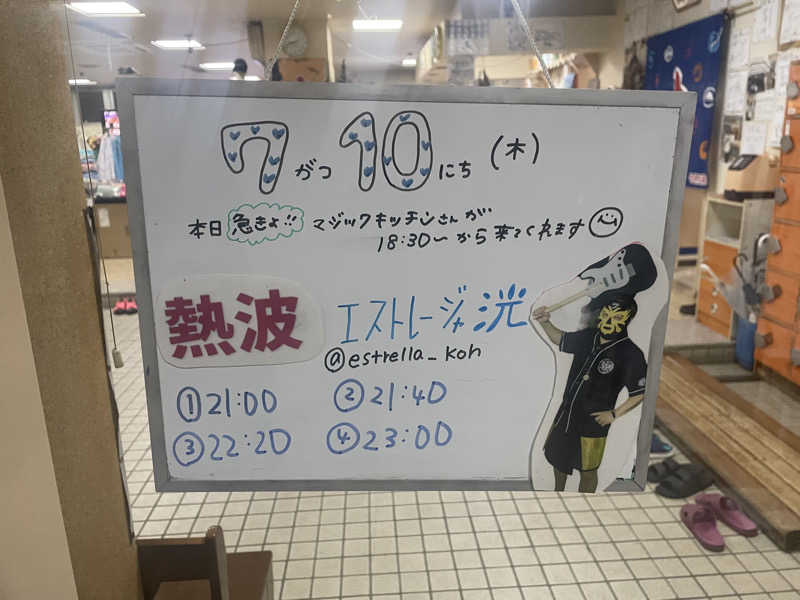 7がつ10にち(木)
本日急きょ!!マジックキッチンさんが
18:30〜から来てくれます
熱波
エストレージャ洸
@estrella_koh
①21:00 ②21:40
③22:20 ④23:00